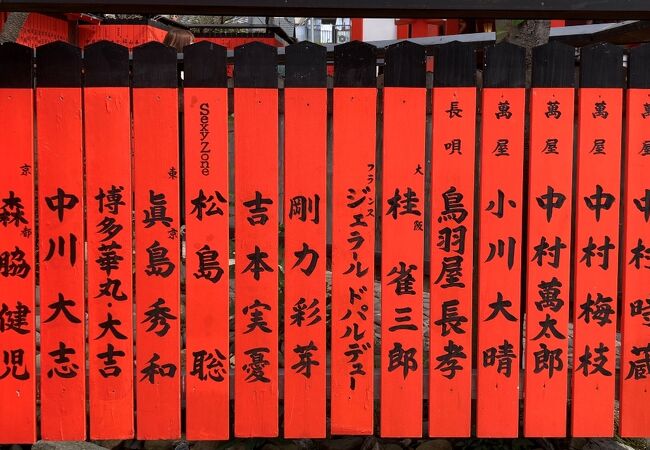 萬屋 中村時蔵
萬屋 中村梅枝
萬屋 中村萬太郎
萬屋 小川大晴
長唄 鳥羽屋長孝
大阪 桂雀三郎
フランス ジェラール ドパルデュー
剛力彩芽
吉本実憂
Sexy Zone 松島聡
東京 眞島秀和
博多華丸・大吉
中川大志
京都 森脇健児